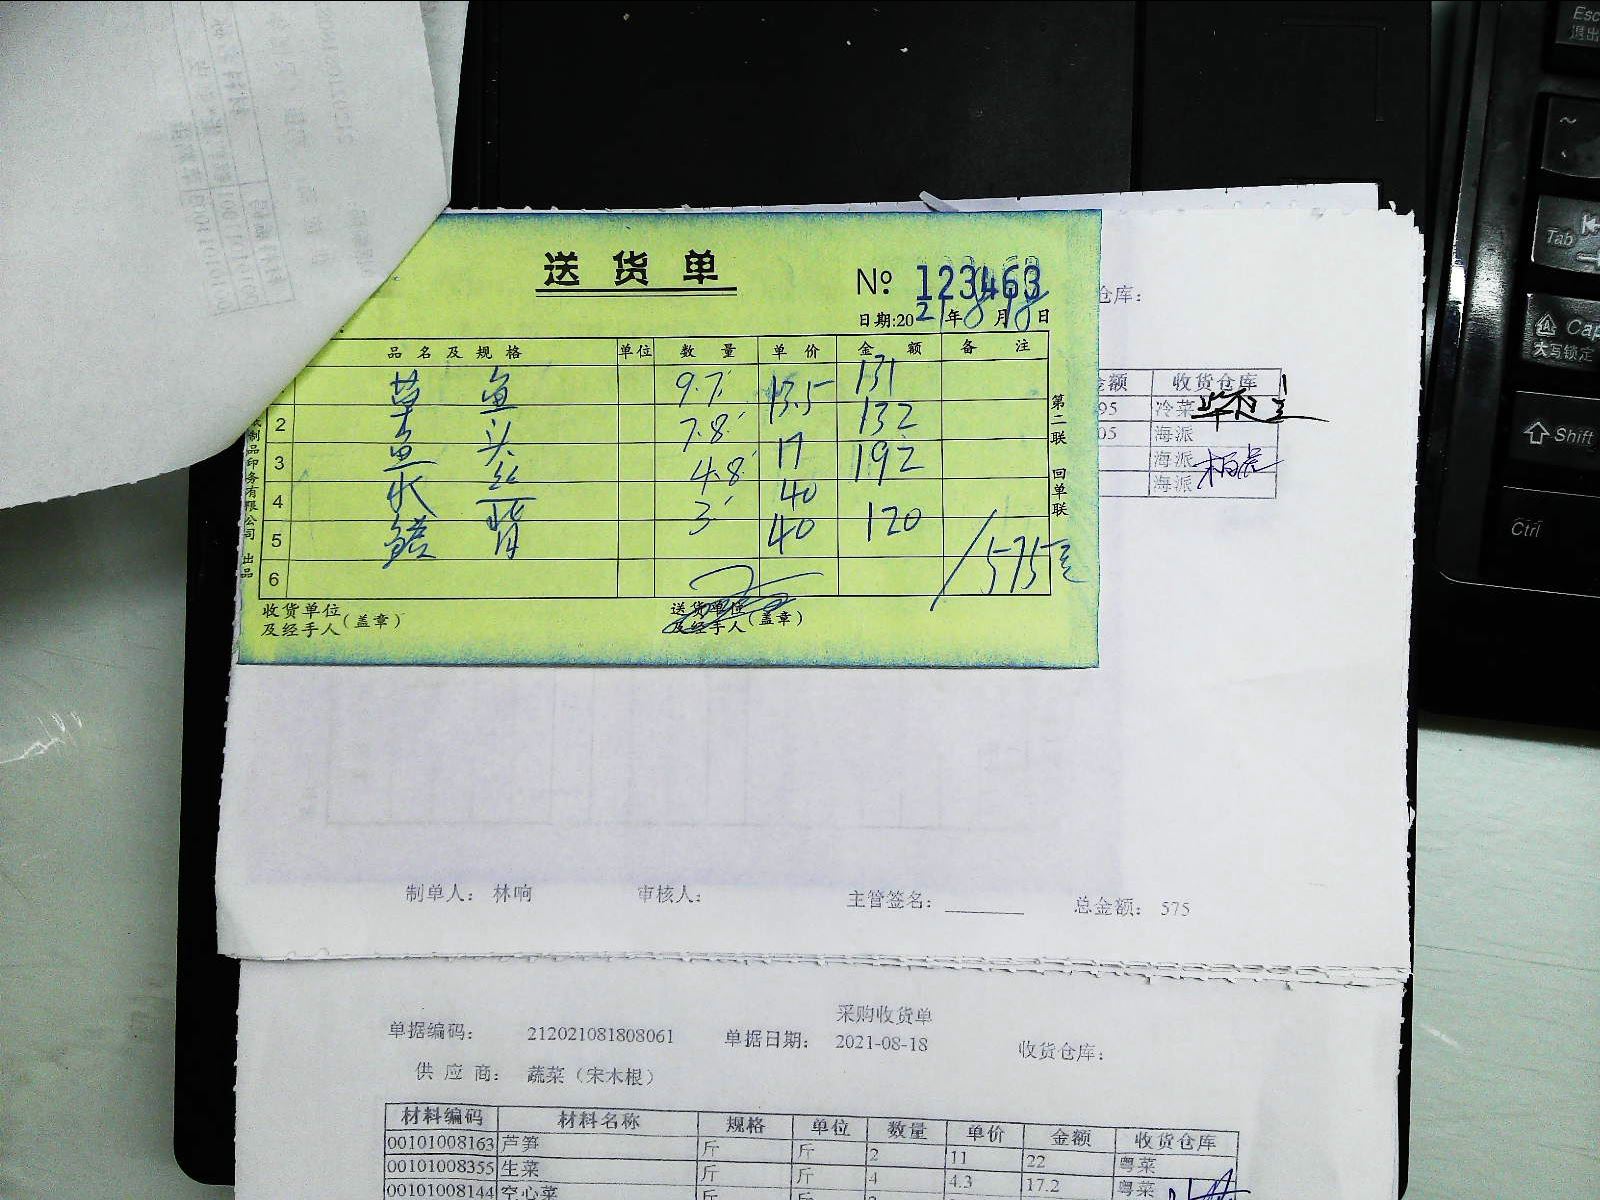 送货单
№ 123463
日期:2021年8月18日
品名及规格 单位 数量 单价 金额 备注
草鱼 9.7 13.5 131
2 鱼头 7.8 17 132
3 水 4.8 40 192
4 鳝背 3 40 120
5
6
575元
收货单位及经手人(盖章)
送货单位及经手人(盖章)
第二联 回单联
制品印务有限公司 出品
仓库:
金额 收货仓库
95 冷菜
05 海派
海派
海派
制单人: 林响 审核人: 主管签名: 总金额: 575
采购收货单
单据编码: 212021081808061 单据日期: 2021-08-18 收货仓库:
供应商: 蔬菜（宋木根）
材料编码 材料名称 规格 单位 数量 单价 金额 收货仓库
00101008163 芦笋 斤 斤 2 11 22 粤菜
00101008355 生菜 斤 斤 4 4.3 17.2 粤菜
00101008144 空心菜
Esc
退出
~
Tab
Cap
大写锁定
Shift
Ctrl